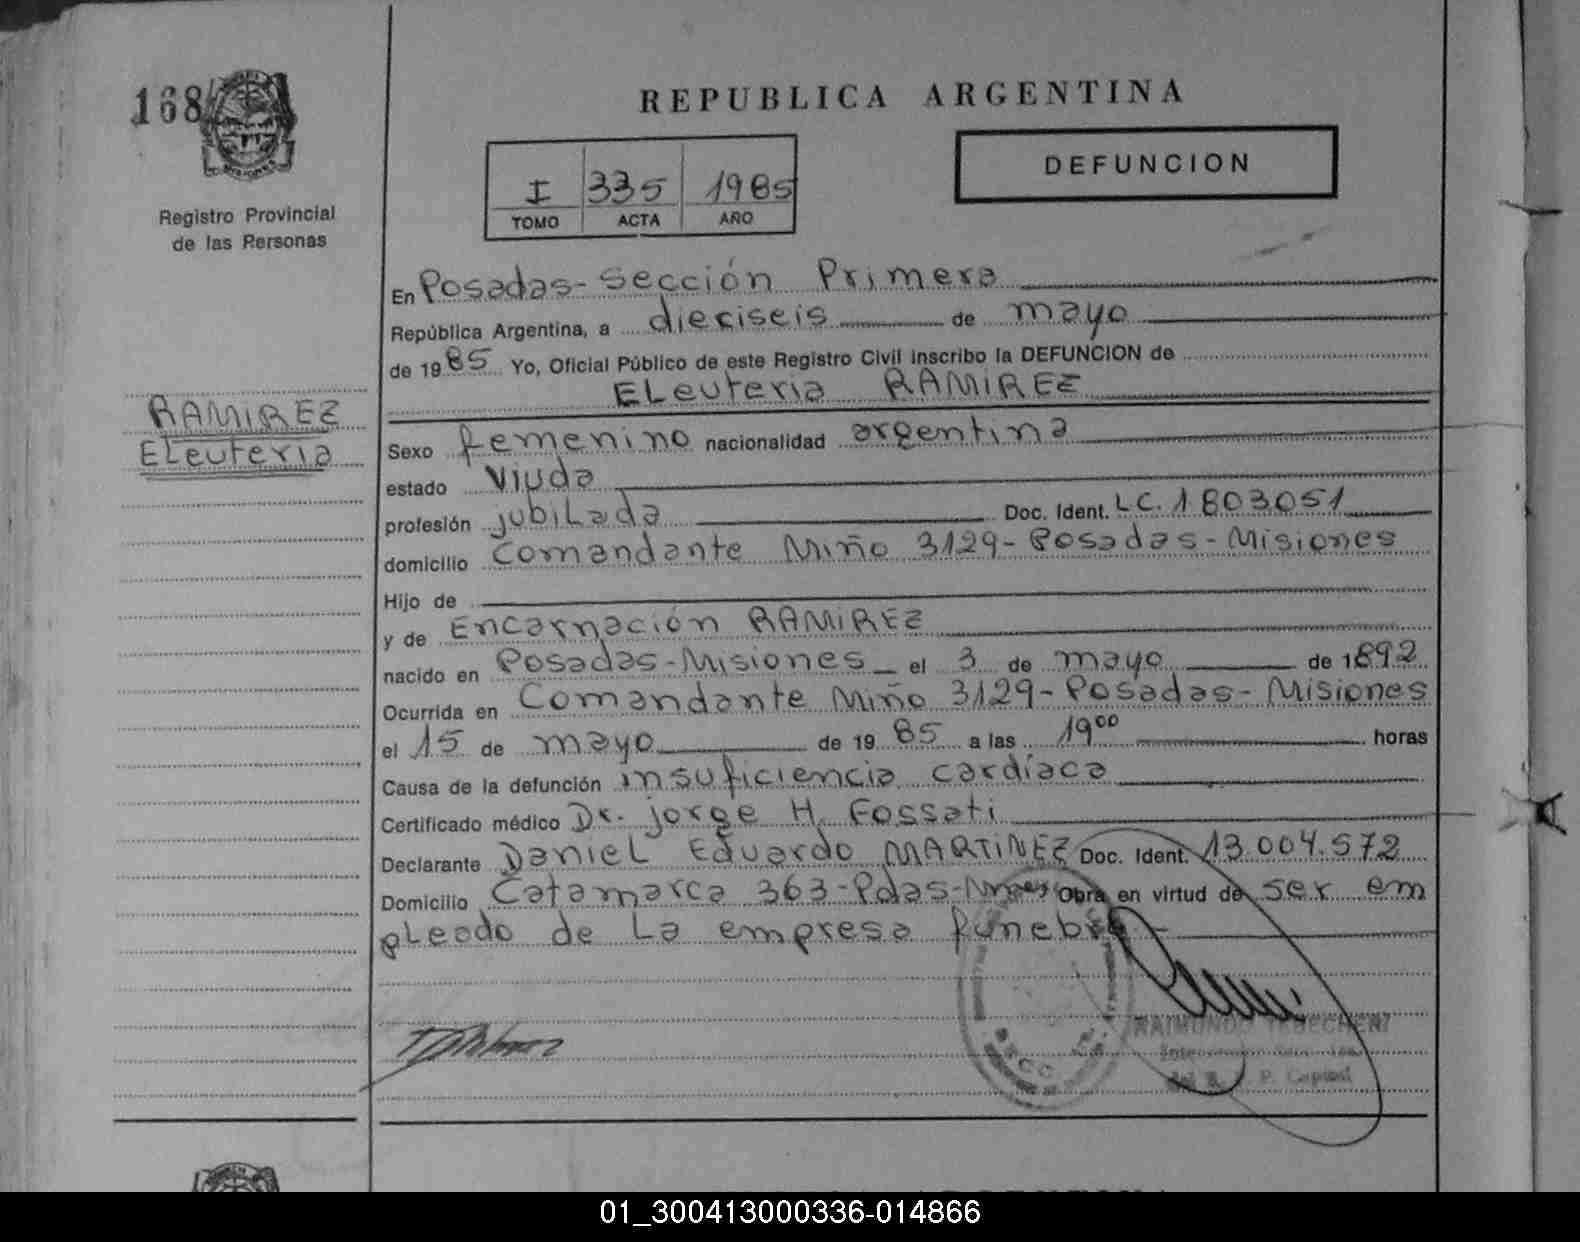 168
Registro Provincial
de las Personas
RAMIREZ
Eleuteria
REPUBLICA ARGENTINA
I 335 1985
TOMO ACTA AÑO
DEFUNCION
En Posadas-Sección Primera
República Argentina, a dieciseis de mayo
de 1985 Yo, Oficial Público de este Registro Civil inscribo la DEFUNCION de
Eleuteria RAMIREZ
Sexo femenino nacionalidad argentina
estado Viuda
profesión jubilada Doc. Ident. LC. 1803051
domicilio Comandante Miño 3129-Posadas-Misiones
Hijo de
y de Encarnación RAMIREZ
nacido en Posadas-Misiones el 3 de mayo de 1892
Ocurrida en Comandante Miño 3129-Posadas-Misiones
el 15 de mayo de 1985 a las 19⁰⁰ horas
Causa de la defunción insuficiencia cardíaca
Certificado médico Dr. jorge H. Fossati
Declarante Daniel Eduardo MARTINEZ Doc. Ident. 13.004.572
Domicilio Catamarca 363-Pdas- Obra en virtud de ser em
pleado de la empresa funebre
RAIMUNDO
P. Capital
01_300413000336-014866